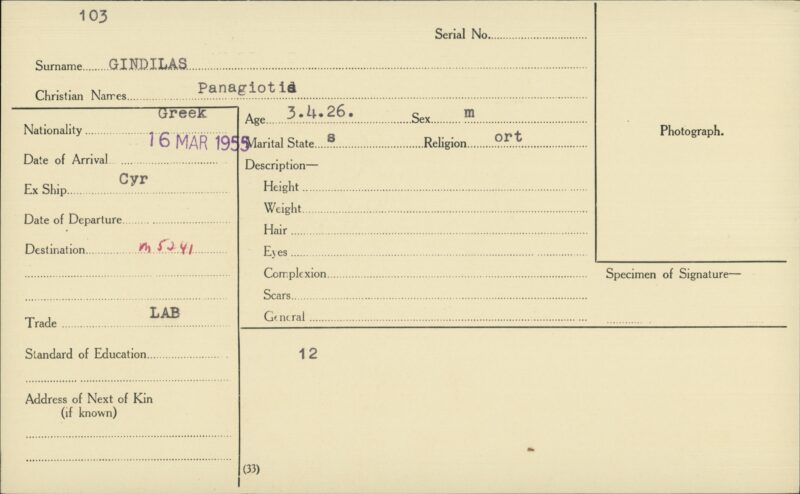 103
Serial No.
Surname GINDILAS
Christian Names Panagiotis
Nationality Greek
Date of Arrival 16 MAR 1955
Ex Ship Cyr
Date of Departure
Destination m 5241
Trade LAB
Standard of Education
Address of Next of Kin
(if known)
Age 3.4.26. Sex m
Marital State s Religion ort
Description—
Height
Weight
Hair
Eyes
Complexion
Scars
General
12
(33)
Photograph.
Specimen of Signature—